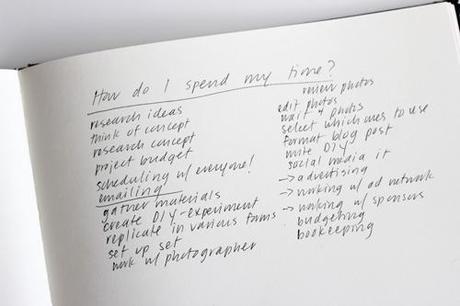 How do I spend my time?
research ideas
think of concept
research concept
project budget
scheduling w/ everyone!
emailing
gather materials
create DIY-experiment
replicate in various forms
set up set
work w/ photographer
review photos
edit photos
wait 4 photos
select which ones to use
format blog post
write DIY
social media it
→ advertising
→ working w/ ad network
→ working w/ sponsors
budgeting
bookeeping